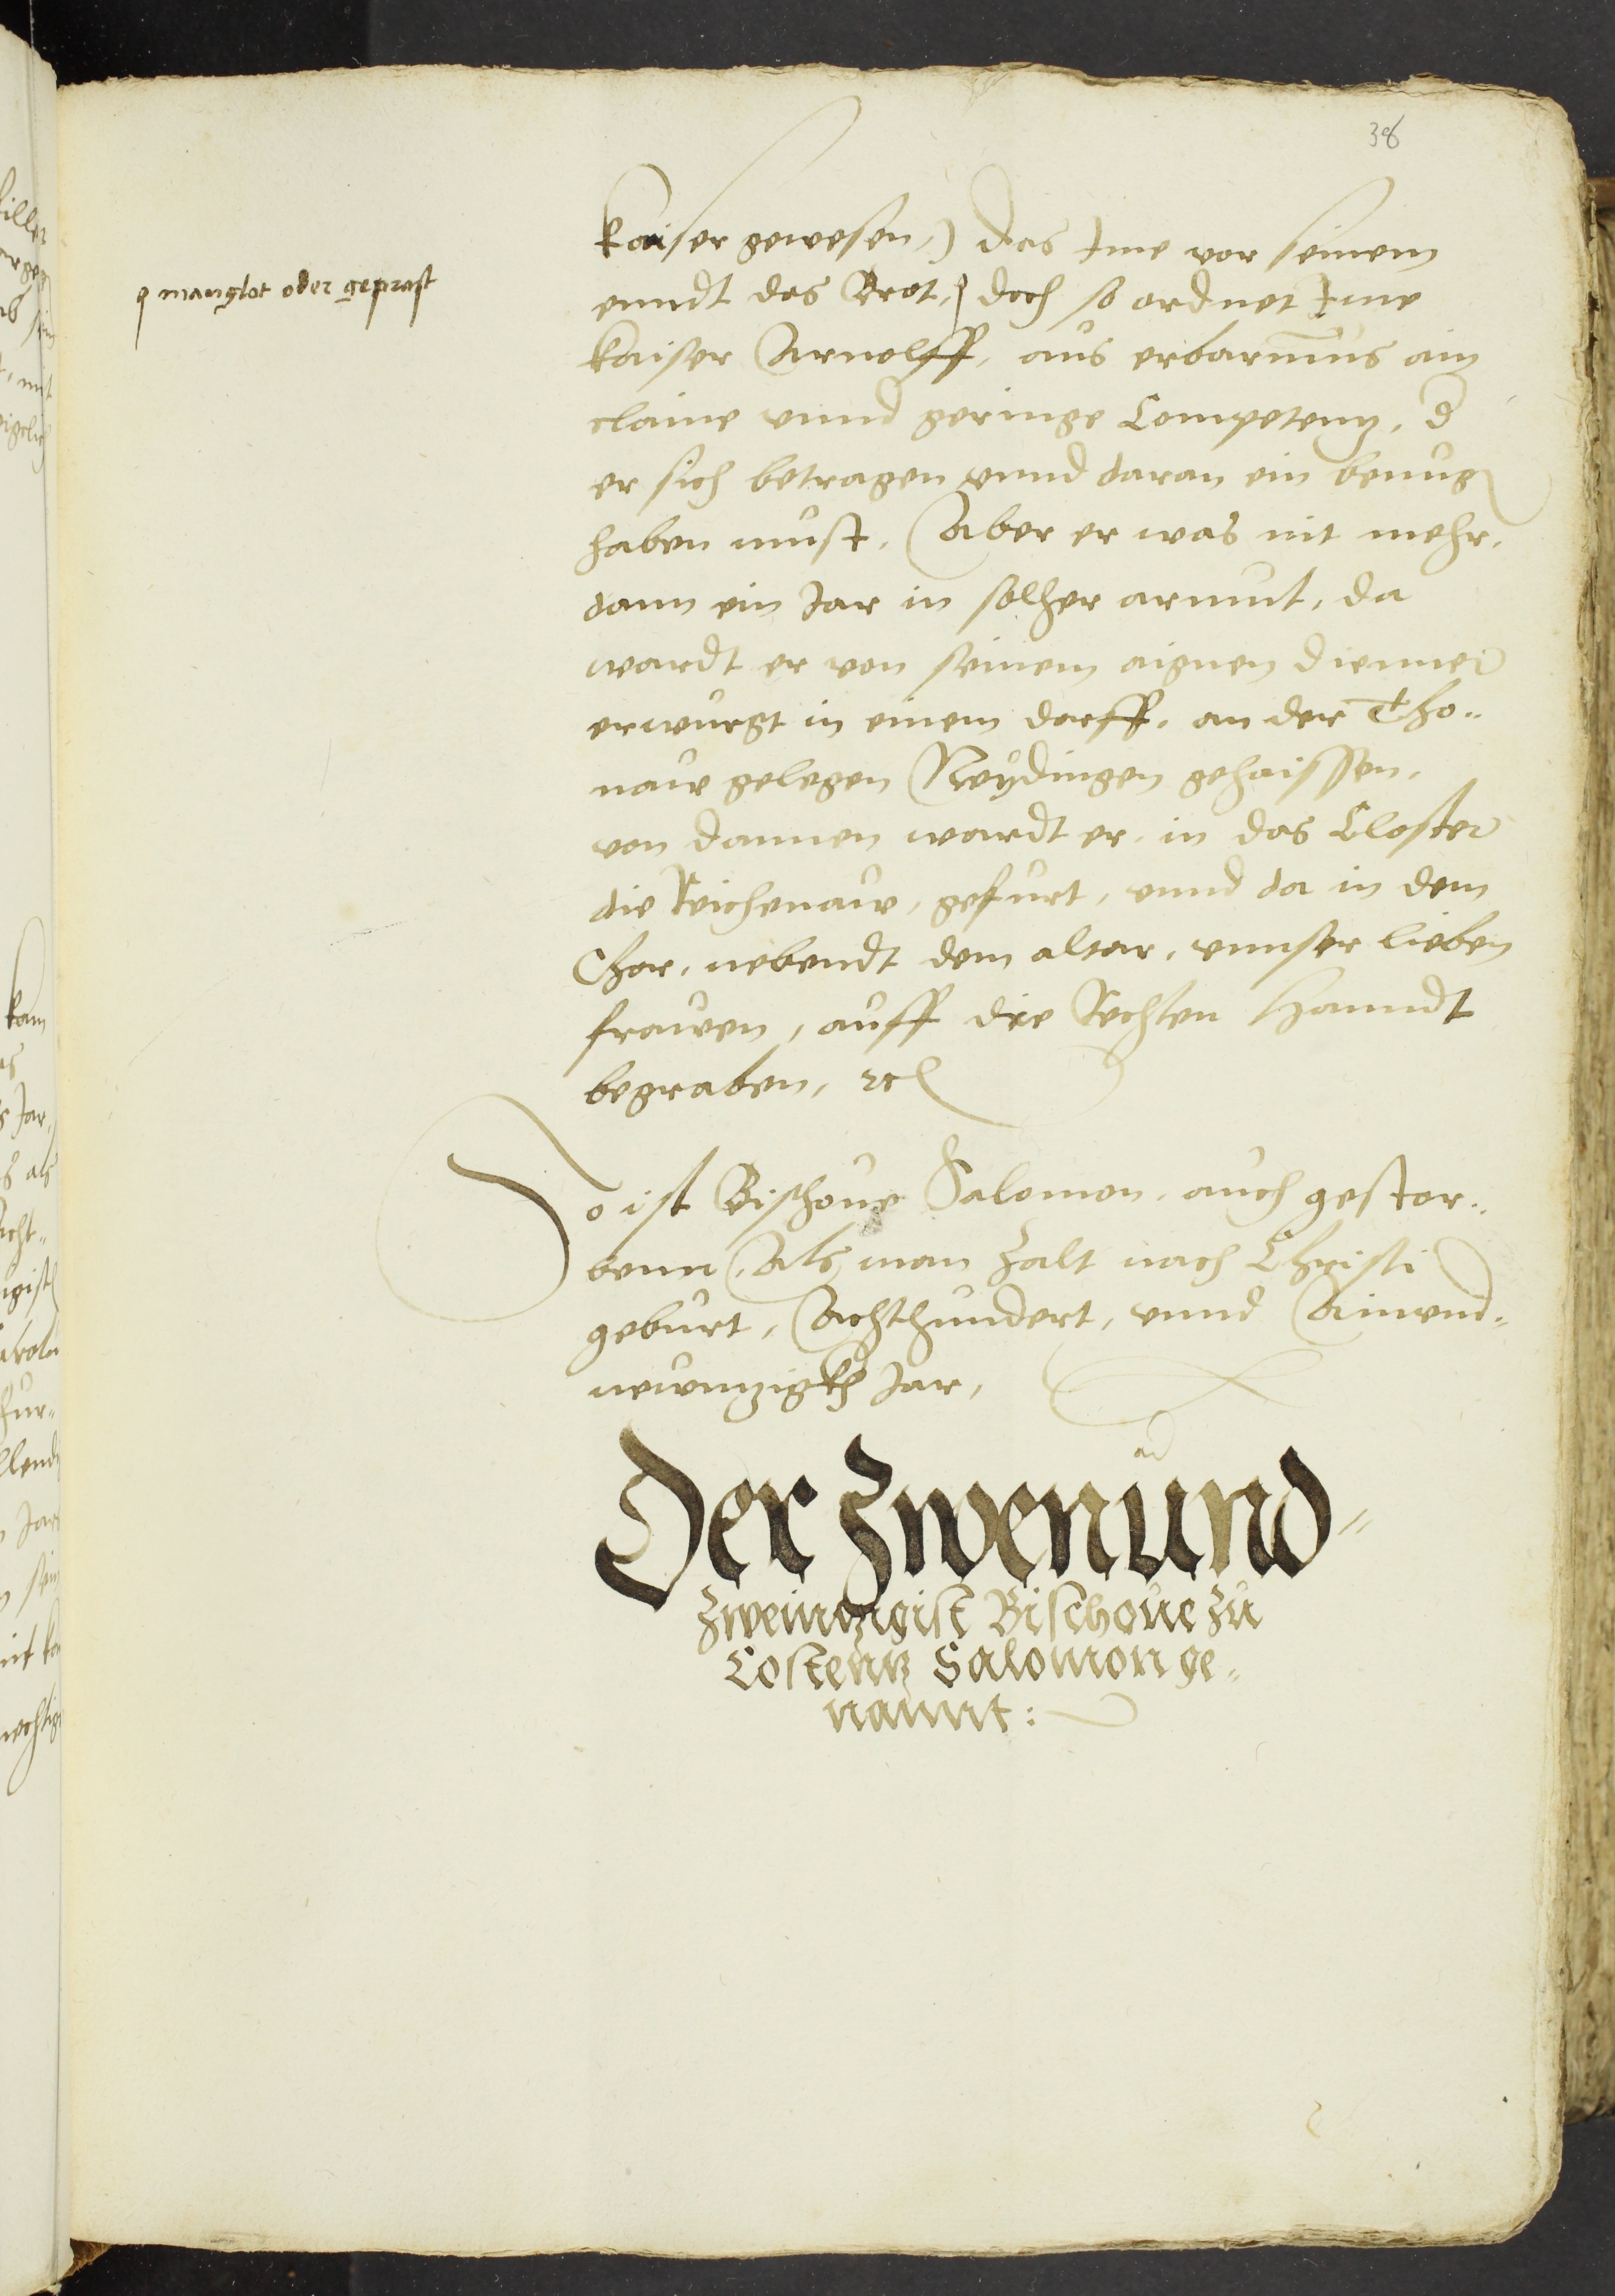 38
kaiser gewesen,) das Ime vor seinem
enndt das Brot, doch so ordnet Ime
manglot oder geprast
kaiser Arnolff, aus erbarmus ain
claine vnnd geringe Competentz, d
er sich betragen vnnd daran ein benug
haben must, Aber er was nit mehr,
dann ein Jar in solher armut, da
wardt er von seinem aignen dienner
erwurgt in einem dorff, an der Tho-
naw gelegen Neydingen gehaissen,
von dannen wardt er, in das Closter
die Reichenaw, gefurt, vnnd da in dem
Chor, nebendt dem altar, vnnser lieben
frawen, auff die Rechten Hanndt
begraben, etc
So ist Bischoue Salomon, auch gestor-
benn, Als man Zalt nach Christi
geburt, Achthundert, vnnd Ainend-
newntzigkh Jar,
Der Zwenund-
Zweintzigist Bischoue Zu
Costenntz Salomon ge-
nannt: